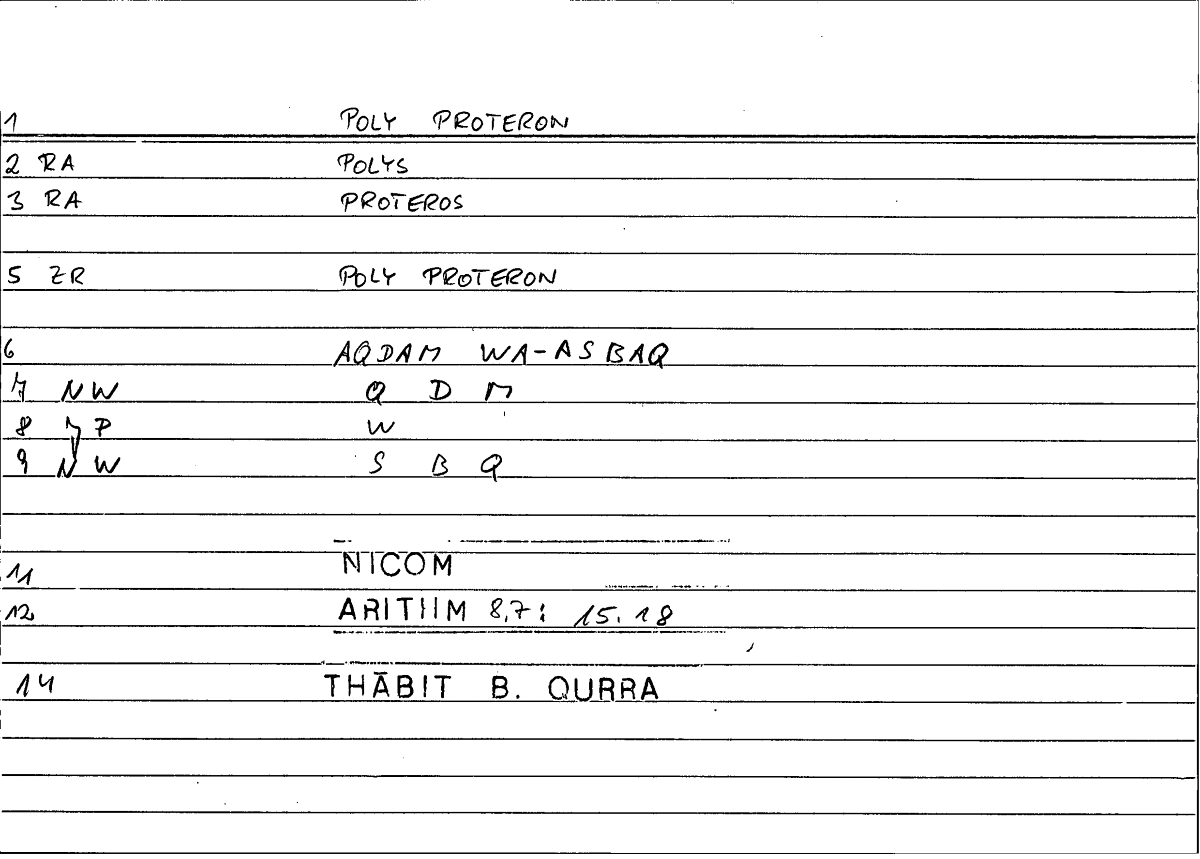 1 POLY PROTERON
2 RA POLYS
3 RA PROTEROS
5 ZR POLY PROTERON
6 AQDAM WA-ASBAQ
7 NW Q D M
8 P W
9 NW S B Q
11 NICOM
12 ARITHM 8,7: 15.18
14 THĀBIT B. QURRA